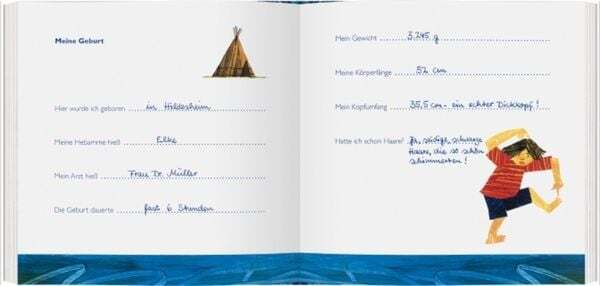 Meine Geburt
Hier wurde ich geboren in Hildesheim
Meine Hebamme hieß Elke
Mein Arzt hieß Frau Dr. Müller
Die Geburt dauerte fast 6 Stunden
Mein Gewicht 3.245 g
Meine Körperlänge 52 cm
Mein Kopfumfang 35,5 cm - ein echter Dickkopf!
Hatte ich schon Haare? Ja, schwarze
Haare, die so schön
schimmerten!